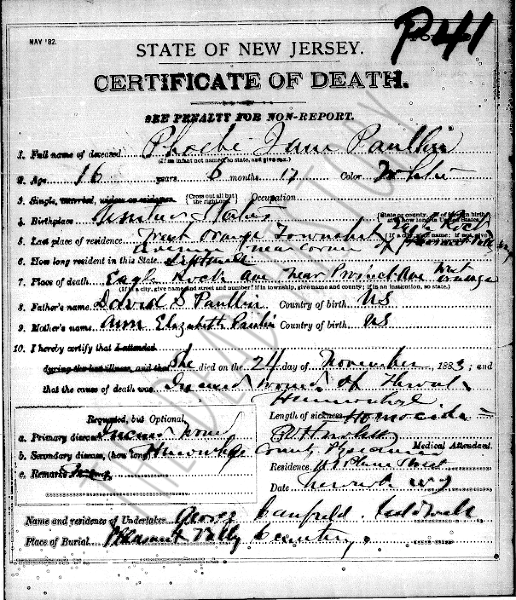 P41
MAY '82.
STATE OF NEW JERSEY.
CERTIFICATE OF DEATH.
SEE PENALTY FOR NON-REPORT.
1. Full name of deceased Phoebe Jane Paullin
(If an infant not named, so state, and give sex.)
2. Age 16 years 6 months 17 Color White
3. Single, married, widow or widower. (Cross out all but the right one.) Occupation
4. Birthplace United States (State or county, if of foreign birth
5. Last place of residence West Orange Township Eagle Rock
Avenue near corner of Prospect Ave
6. How long resident in this State
7. Place of death Eagle Rock Ave near Prospect Ave West Orange
(If in a city, give name and street and number; if in a township, give name and county; if in an institution, so state.)
8. Father's name David S Paullin Country of birth US
9. Mother's name Ann Elizabeth Paullin Country of birth US
10. I hereby certify that I attended
during the last illness, and that she died on the 24 day of November, 1883; and
that the cause of death was Incised wound of throat
Hemorrhage
Requested, but Optional. Length of sickness Homocide
a. Primary disease, Incised wound
b. Secondary disease, (how long) Hemorrhage County Physician Medical Attendant.
c. Remarks Residence Street
Date Newark NJ
Name and residence of Undertaker George Canfield Caldwell
Place of Burial Pleasant Cemetery
THE DEAD HISTORY